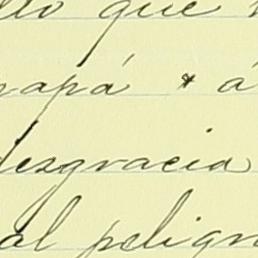 que
papá * á
desgracia
al pelign